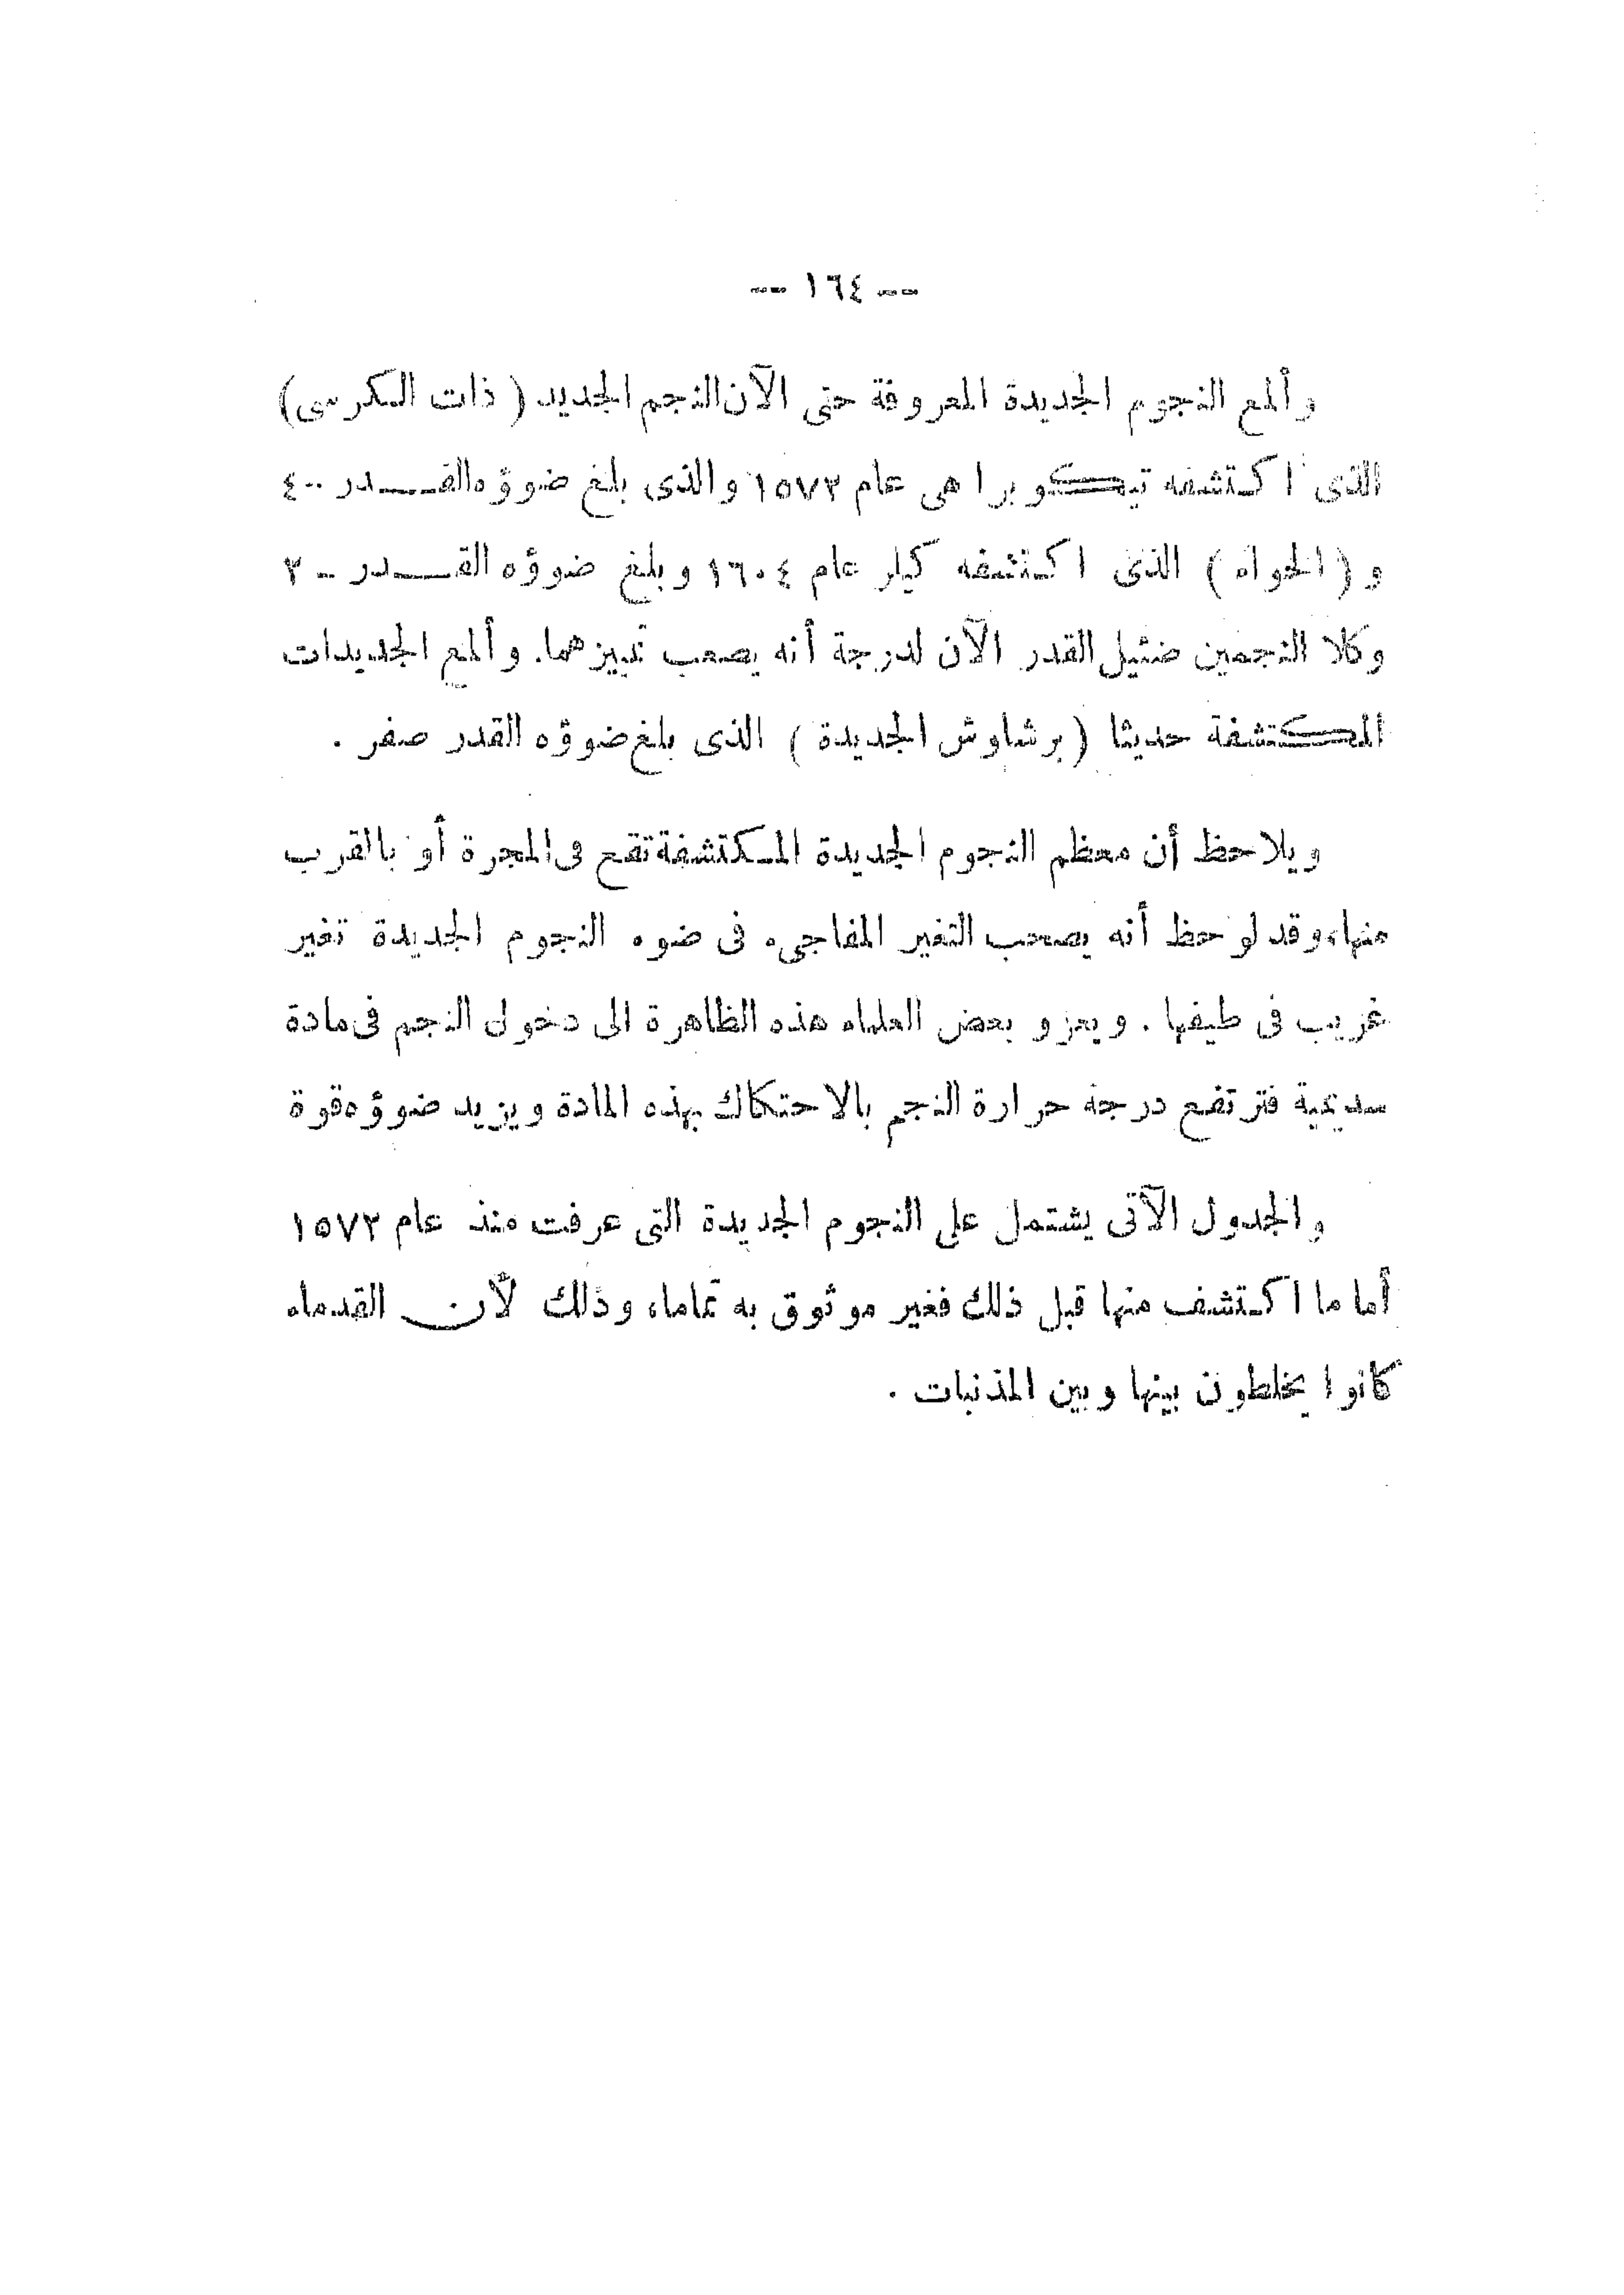 -- ١٦٤ --
وألمع النجوم الجديدة المعروفة حتى الآن النجم الجديد ( ذات الكرسى)
الذى اكتشفه تيكو براهى عام ١٥٧٣ والذى بلغ ضوؤه القدر -٤
و (الحواء) الذى اكتشفه كبلر عام ١٦٠٤ وبلغ ضوؤه القدر - ٢
وكلا النجمين ضئيل القدر الآن لدرجة أنه يصعب تمييزهما. وألمع الجديدات
المكتشفة حديثا (برشاوش الجديدة) الذى بلغ ضوؤه القدر صفر .
ويلاحظ أن معظم النجوم الجديدة المكتشفة تقع فى المجرة أو بالقرب
منها، وقد لوحظ أنه يصحب التغير المفاجىء فى ضوء النجوم الجديدة تغير
غريب فى طيفها . ويعزو بعض العلماء هذه الظاهرة الى دخول النجم فى مادة
سديمية فترتفع درجة حرارة النجم بالاحتكاك بهذه المادة ويزيد ضوؤه قوة
والجدول الآتى يشتمل على النجوم الجديدة التى عرفت منذ عام ١٥٧٣
أما ما اكتشف منها قبل ذلك فغير موثوق به تماما، وذلك لأن القدماء
كانوا يخلطون بينها وبين المذنبات .